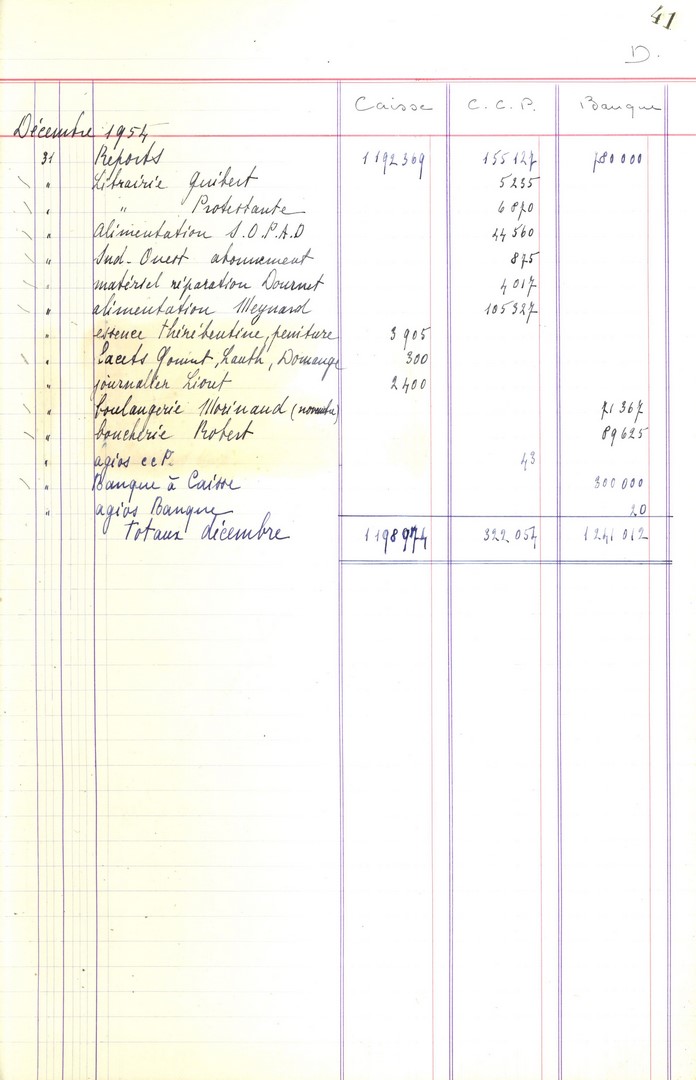 41
D.
Caisse C.C.P. Banque
Décembre 1954
31 Reports 1192369 155127 780000
" Librairie Guibert 5235
" " Protestante 6870
" Alimentation S.O.P.A.D 44560
" Sud-Ouest abonnement 875
" matériel réparation Dournet 4017
" alimentation Meynard 105327
" essence thérébentine, peinture 3905
" Lacets Lauth, Domange 300
" journalier Liout 2400
" boulangerie Morinaud (novembre) 71367
" boucherie Robert 89625
" agios ccP. 43
" Banque à Caisse 300000
" agios Banque 20
Totaux décembre 1198974 322054 1241012